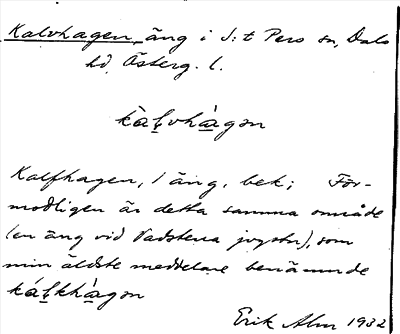 Kalvhagen, äng i S:t Pers sn, Dals
hd, Österg. l.
kàl̥vhàgən
Kalfhagen, 1 äng, bek; För-
modligen är detta samma område
(en äng vid Vadstena jvgstn), som
min äldste meddelare benämnde
kál̥khàgən
Erik Alm 1932